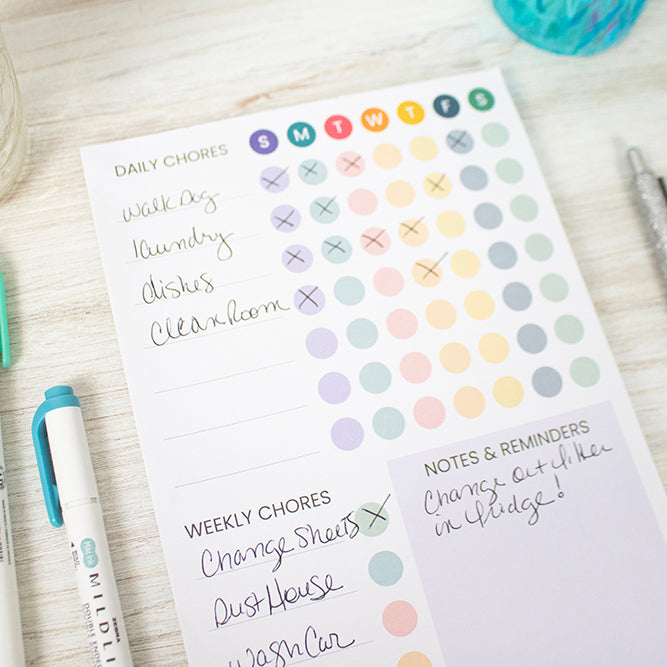 S M T W T F S
DAILY CHORES
walk Dog
laundry
dishes
Clean Room
WEEKLY CHORES
Change Sheets
Dust House
Wash Car
NOTES & REMINDERS
Change out filter
in fridge!
Mild ink
MILDLI
DOUBLE ENDE
ZEBRA